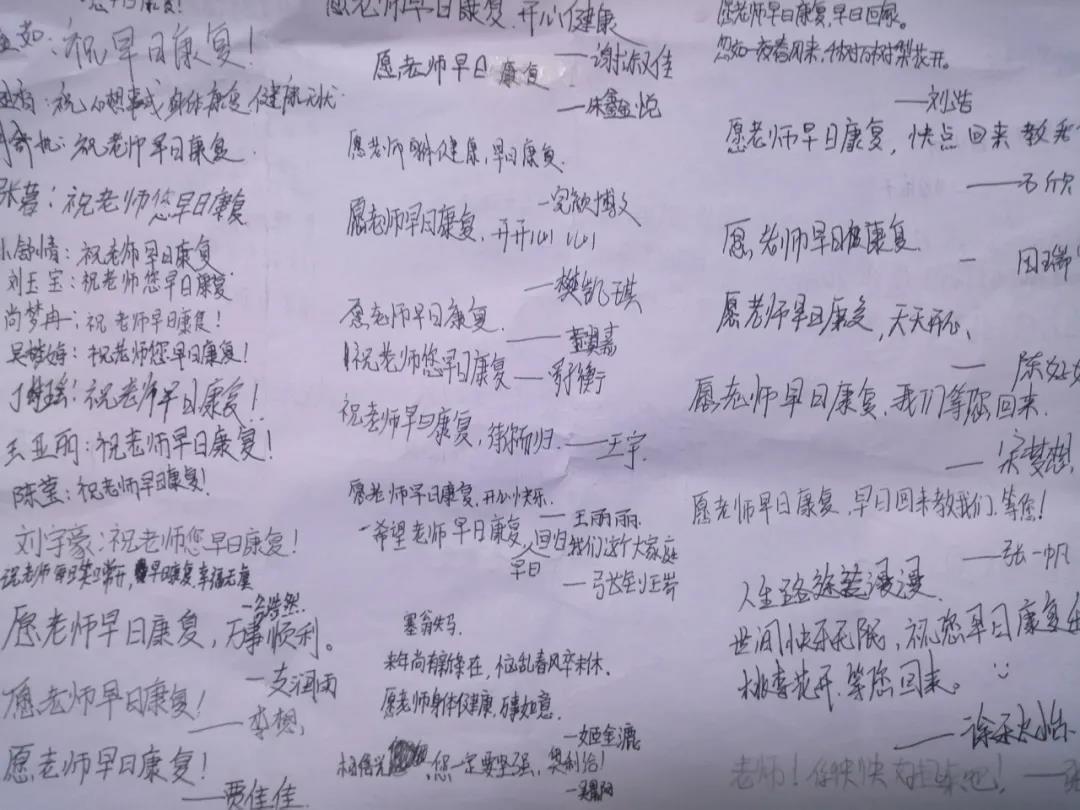 早日康复!
如:祝早日康复!
祝心想事成 身体康复 健康无忧
祝老师早日康复
张蓉:祝老师您早日康复
舒情:祝老师早日康复
刘玉宝:祝老师您早日康复
尚梦冉:祝老师早日康复!
吴梦娒:祝老师您早日康复!
丁 祝老师早日康复!
王亚丽:祝老师早日康复!
陈莹:祝老师早日康复!
刘宇豪:祝老师您早日康复!
祝老师每日笑口常开,早日康复 幸福无虞
浩然
愿老师早日康复,万事顺利。
—支润雨
愿老师早日康复!
——李想
愿老师早日康复!
——贾佳佳
愿老师早日康复,开心健康
——谢淑佳
愿老师早日康复
——朱鑫悦
愿老师身体健康,早日康复
—完颜博文
愿老师早日康复,开开心心
——樊凯琪
愿老师早日康复
——董昊嘉
祝老师您早日康复——罗衡
祝老师早日康复,待你而归——王宇
愿老师早日康复,开心快乐
—王丽丽
—希望老师早日康复,早日回归我们这个大家庭
塞翁失马
来年尚有新僚在,恼乱春风卒未休。
愿老师身体健康,万事如意
—姬金漉
您一定要坚强,奥利给!
愿老师早日康复,早日回家。
忽如一夜春风来,千树万树梨花开。
——刘浩
愿老师早日康复,快点回来教我
愿老师早日康复
— 田瑞
愿老师早日康复,天天开心
— 陈
愿老师早日康复,我们等你回来
— 宋梦想
愿老师早日康复,早日回来教我们,等您!
——张一帆
人生路途若漫漫
世间快乐无限,祝您早日康复
桃李花开,等您回来。
老师!你快快 回来吧!